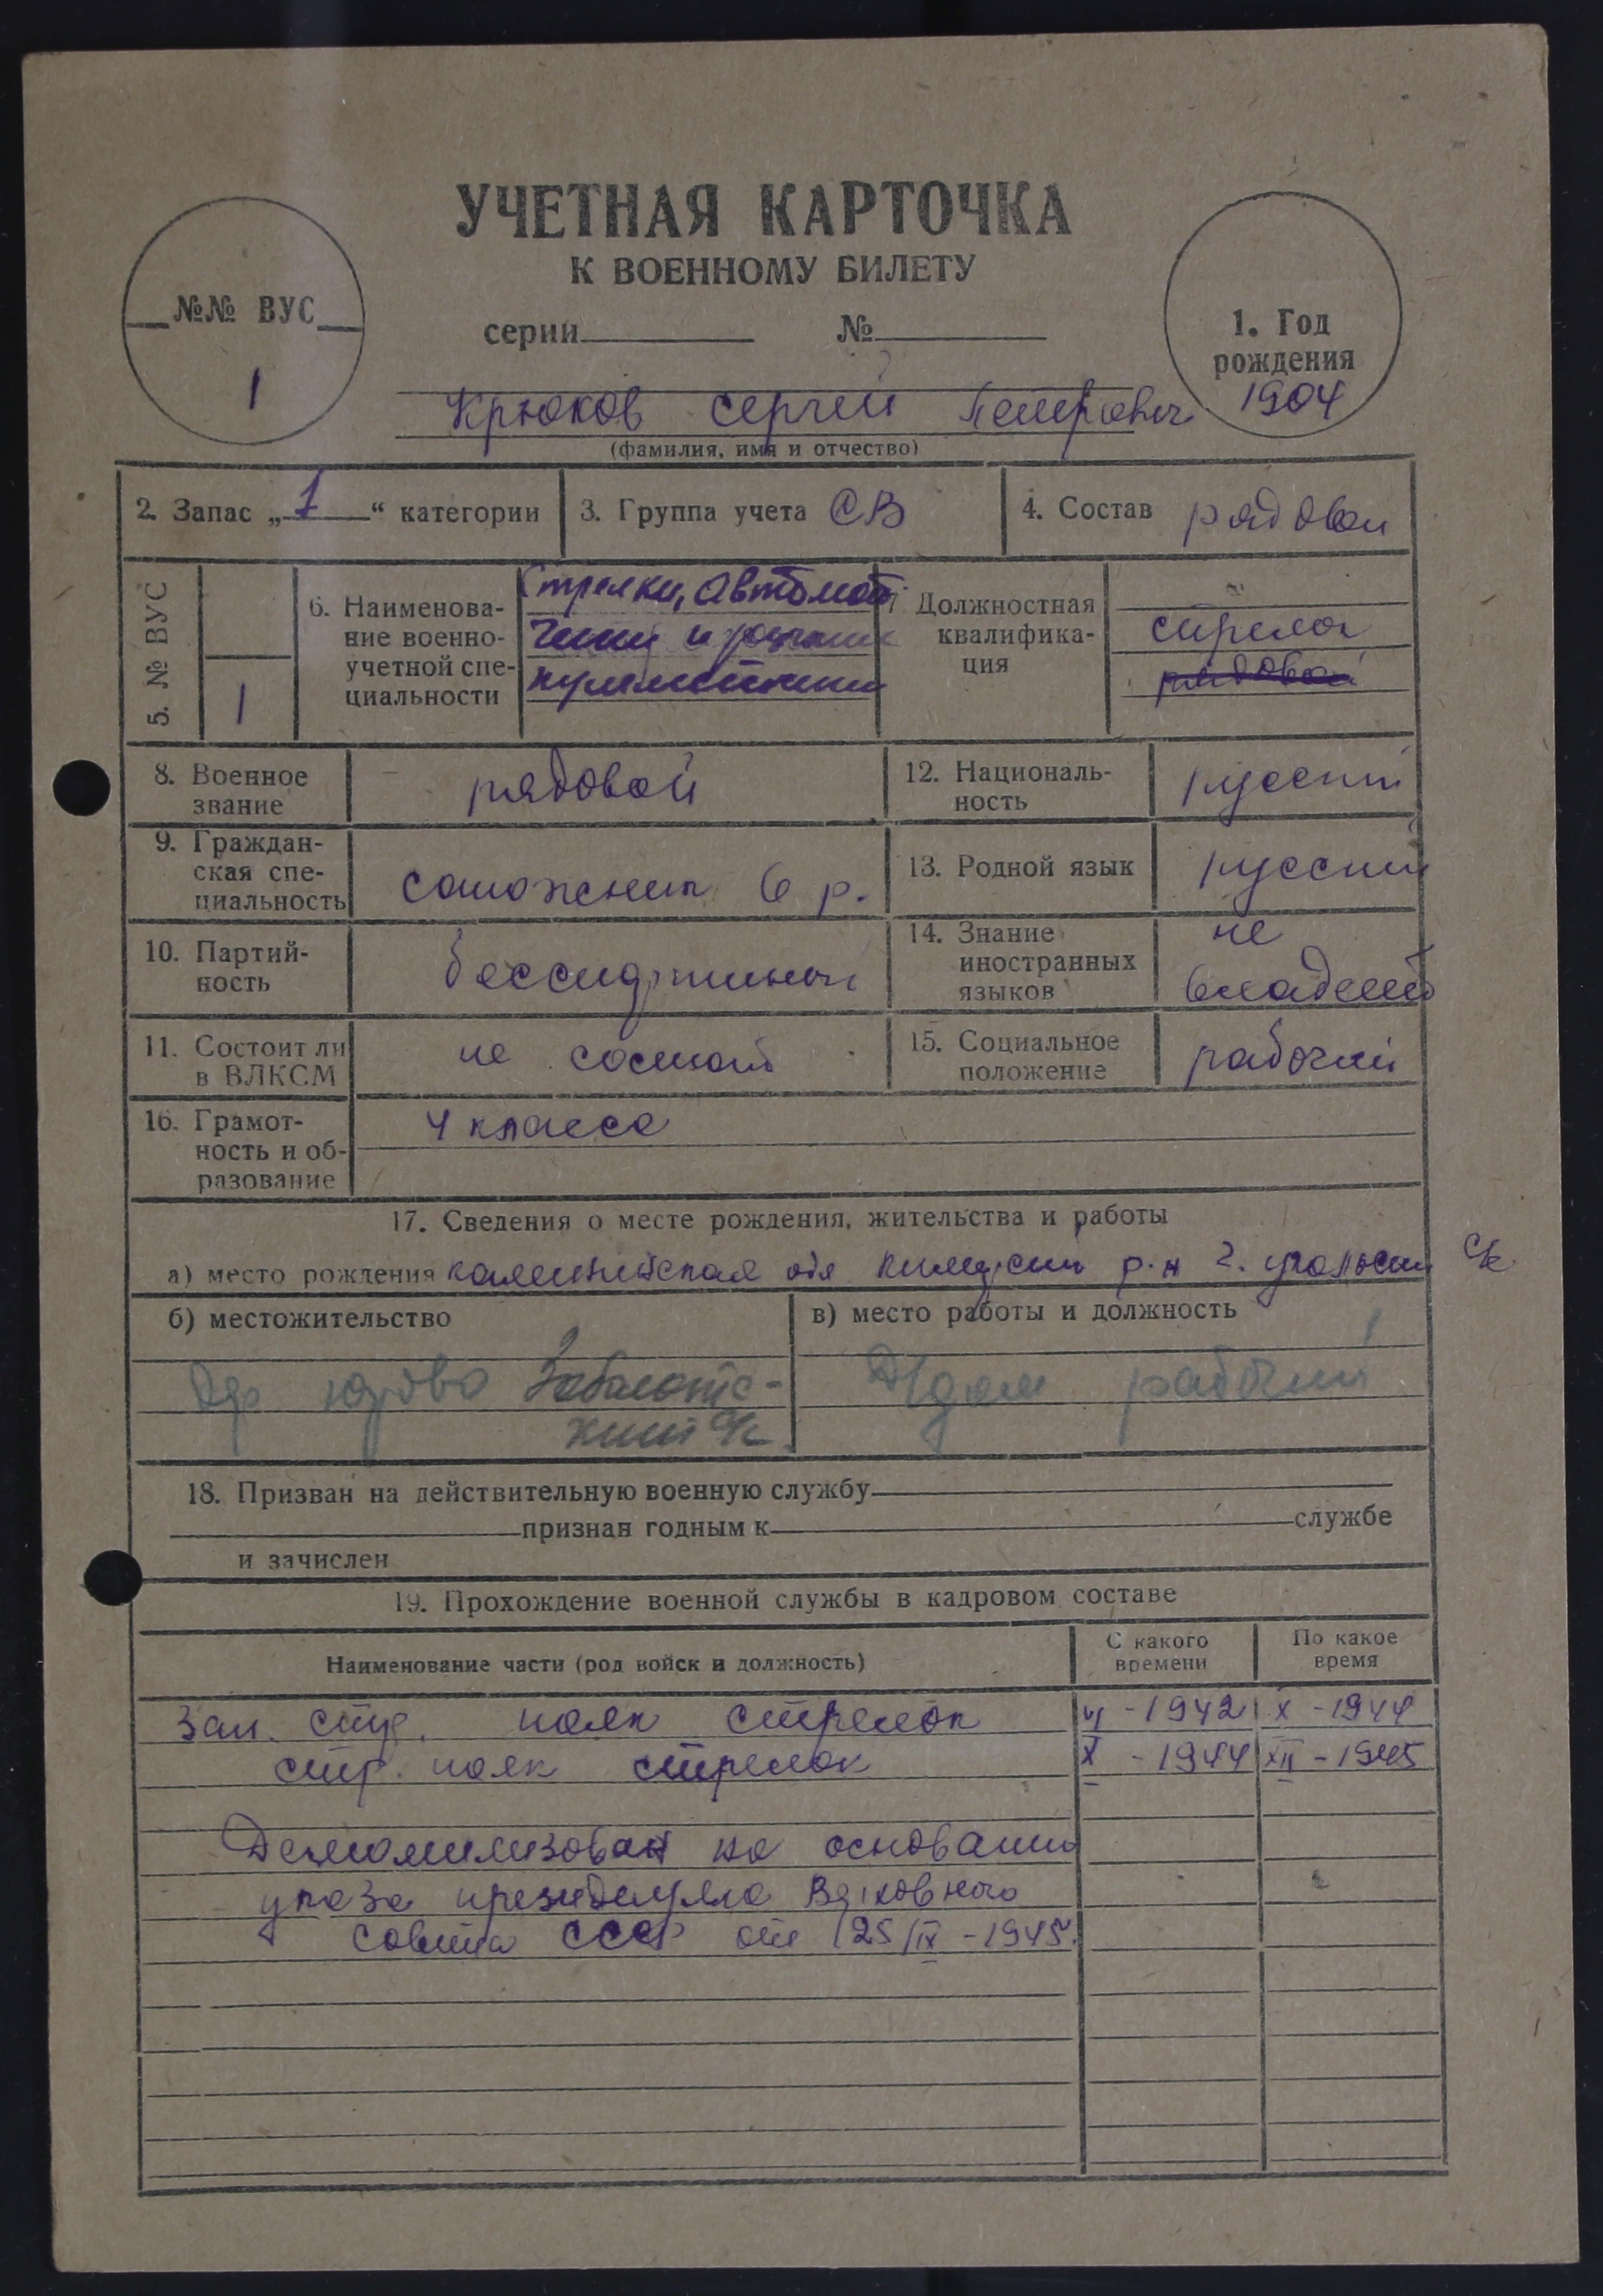 УЧЕТНАЯ КАРТОЧКА
К ВОЕННОМУ БИЛЕТУ
серии №
№№ ВУС
1
1. Год
рождения
1904
Крюков Сергей Петрович
(фамилия, имя и отчество)
2. Запас „1“ категории
3. Группа учета СВ
4. Состав рядовой
5. № ВУС
1
6. Наименова-
ние военно-
учетной спе-
циальности
Стрелки, автомат
чики и ручные
пулеметчики
Должностная
квалифика-
ция
стрелок
рядовой
8. Военное
звание
рядовой
12. Националь-
ность
русский
9. Граждан-
ская спе-
циальность
сапожник 6 р.
13. Родной язык
русский
10. Партий-
ность
14. Знание
иностранных
языков
не
владеет
11. Состоит ли
в ВЛКСМ
не состоит
15. Социальное
положение
рабочий
16. Грамот-
ность и об-
разование
4 класса
17. Сведения о месте рождения, жительства и работы
а) место рождения р-н
б) местожительство
в) место работы и должность
дер Юрово
рабочий
18. Призван на действительную военную службу
признан годным к службе
и зачислен
19. Прохождение военной службы в кадровом составе
Наименование части (род войск и должность)
С какого
времени
По какое
время
Зап. стр. полк стрелок
VI - 1942 X - 1944
стр. полк стрелок
X - 1944 XII - 1945
на основании
указа Верховного
Совета СССР от 25/IX - 1945.